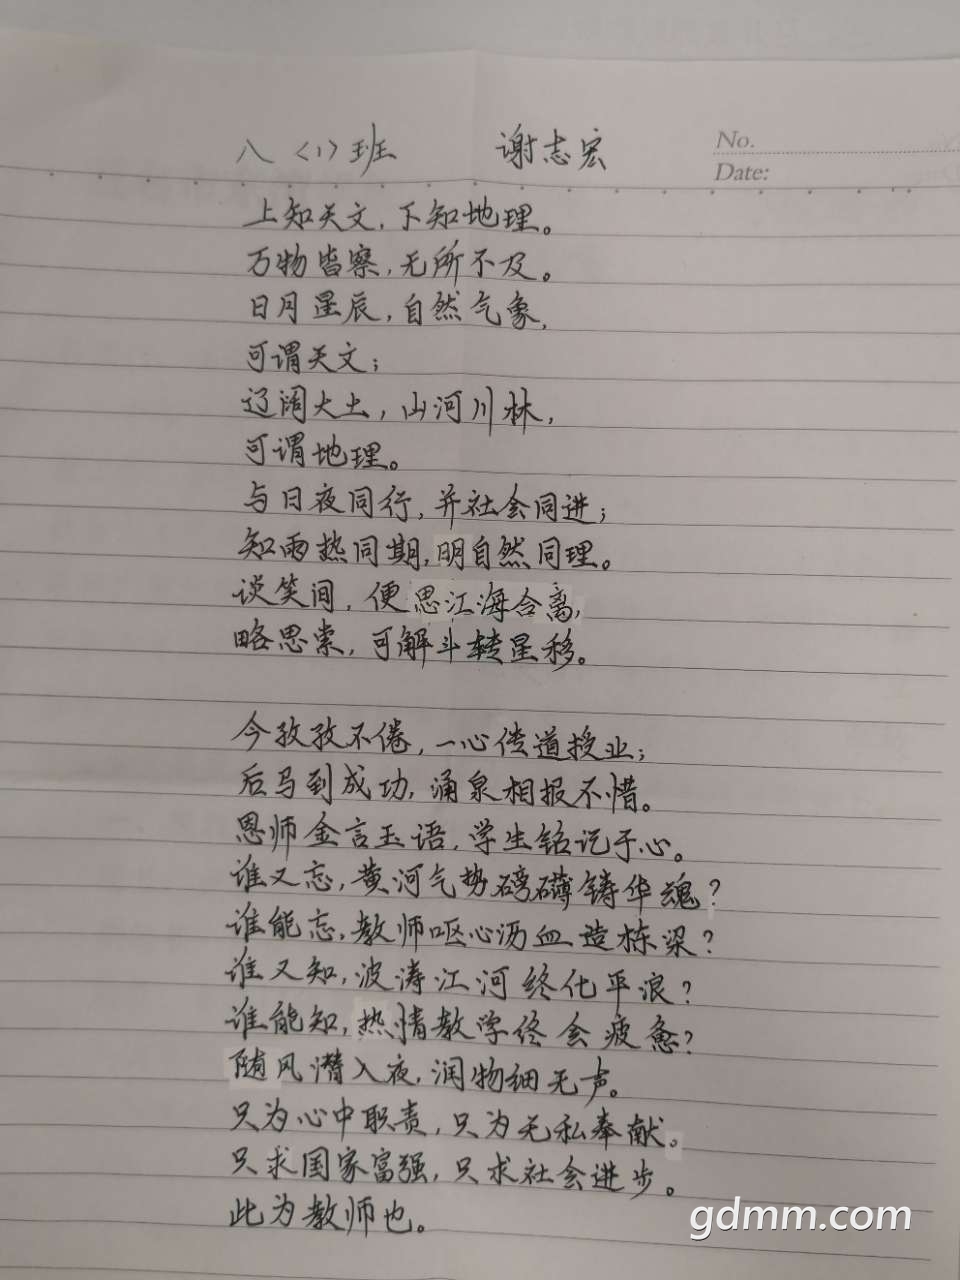 八〈1〉班 谢志宏
No.
Date:
上知天文，下知地理。
万物皆察，无所不及。
日月星辰，自然气象，
可谓天文；
辽阔大土，山河川林，
可谓地理。
与日夜同行，并社会同进；
知雨热同期，明自然同理。
谈笑间，便思江海合离，
略思索，可解斗转星移。
今孜孜不倦，一心传道授业；
后马到成功，涌泉相报不惜。
恩师金言玉语，学生铭记于心。
谁又忘，黄河气势磅礴铸华魂？
谁能忘，教师呕心沥血造栋梁？
谁又知，波涛江河终化平浪？
谁能知，热情教学终会疲惫？
随风潜入夜，润物细无声。
只为心中职责，只为无私奉献。
只求国家富强，只求社会进步。
此为教师也。
gdmm.com